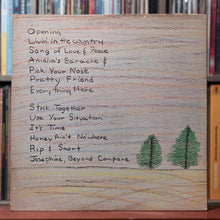 Opening
Livin' in the country
Song of Love & Peace
Amelia's Earache &
Pick Your Nose
Pretty Friend
Everything Here
Stick Together
Use Your Situation
It's Time
Honey Ain't Nowhere
Rip & Snort
Josephine, Beyond Compare